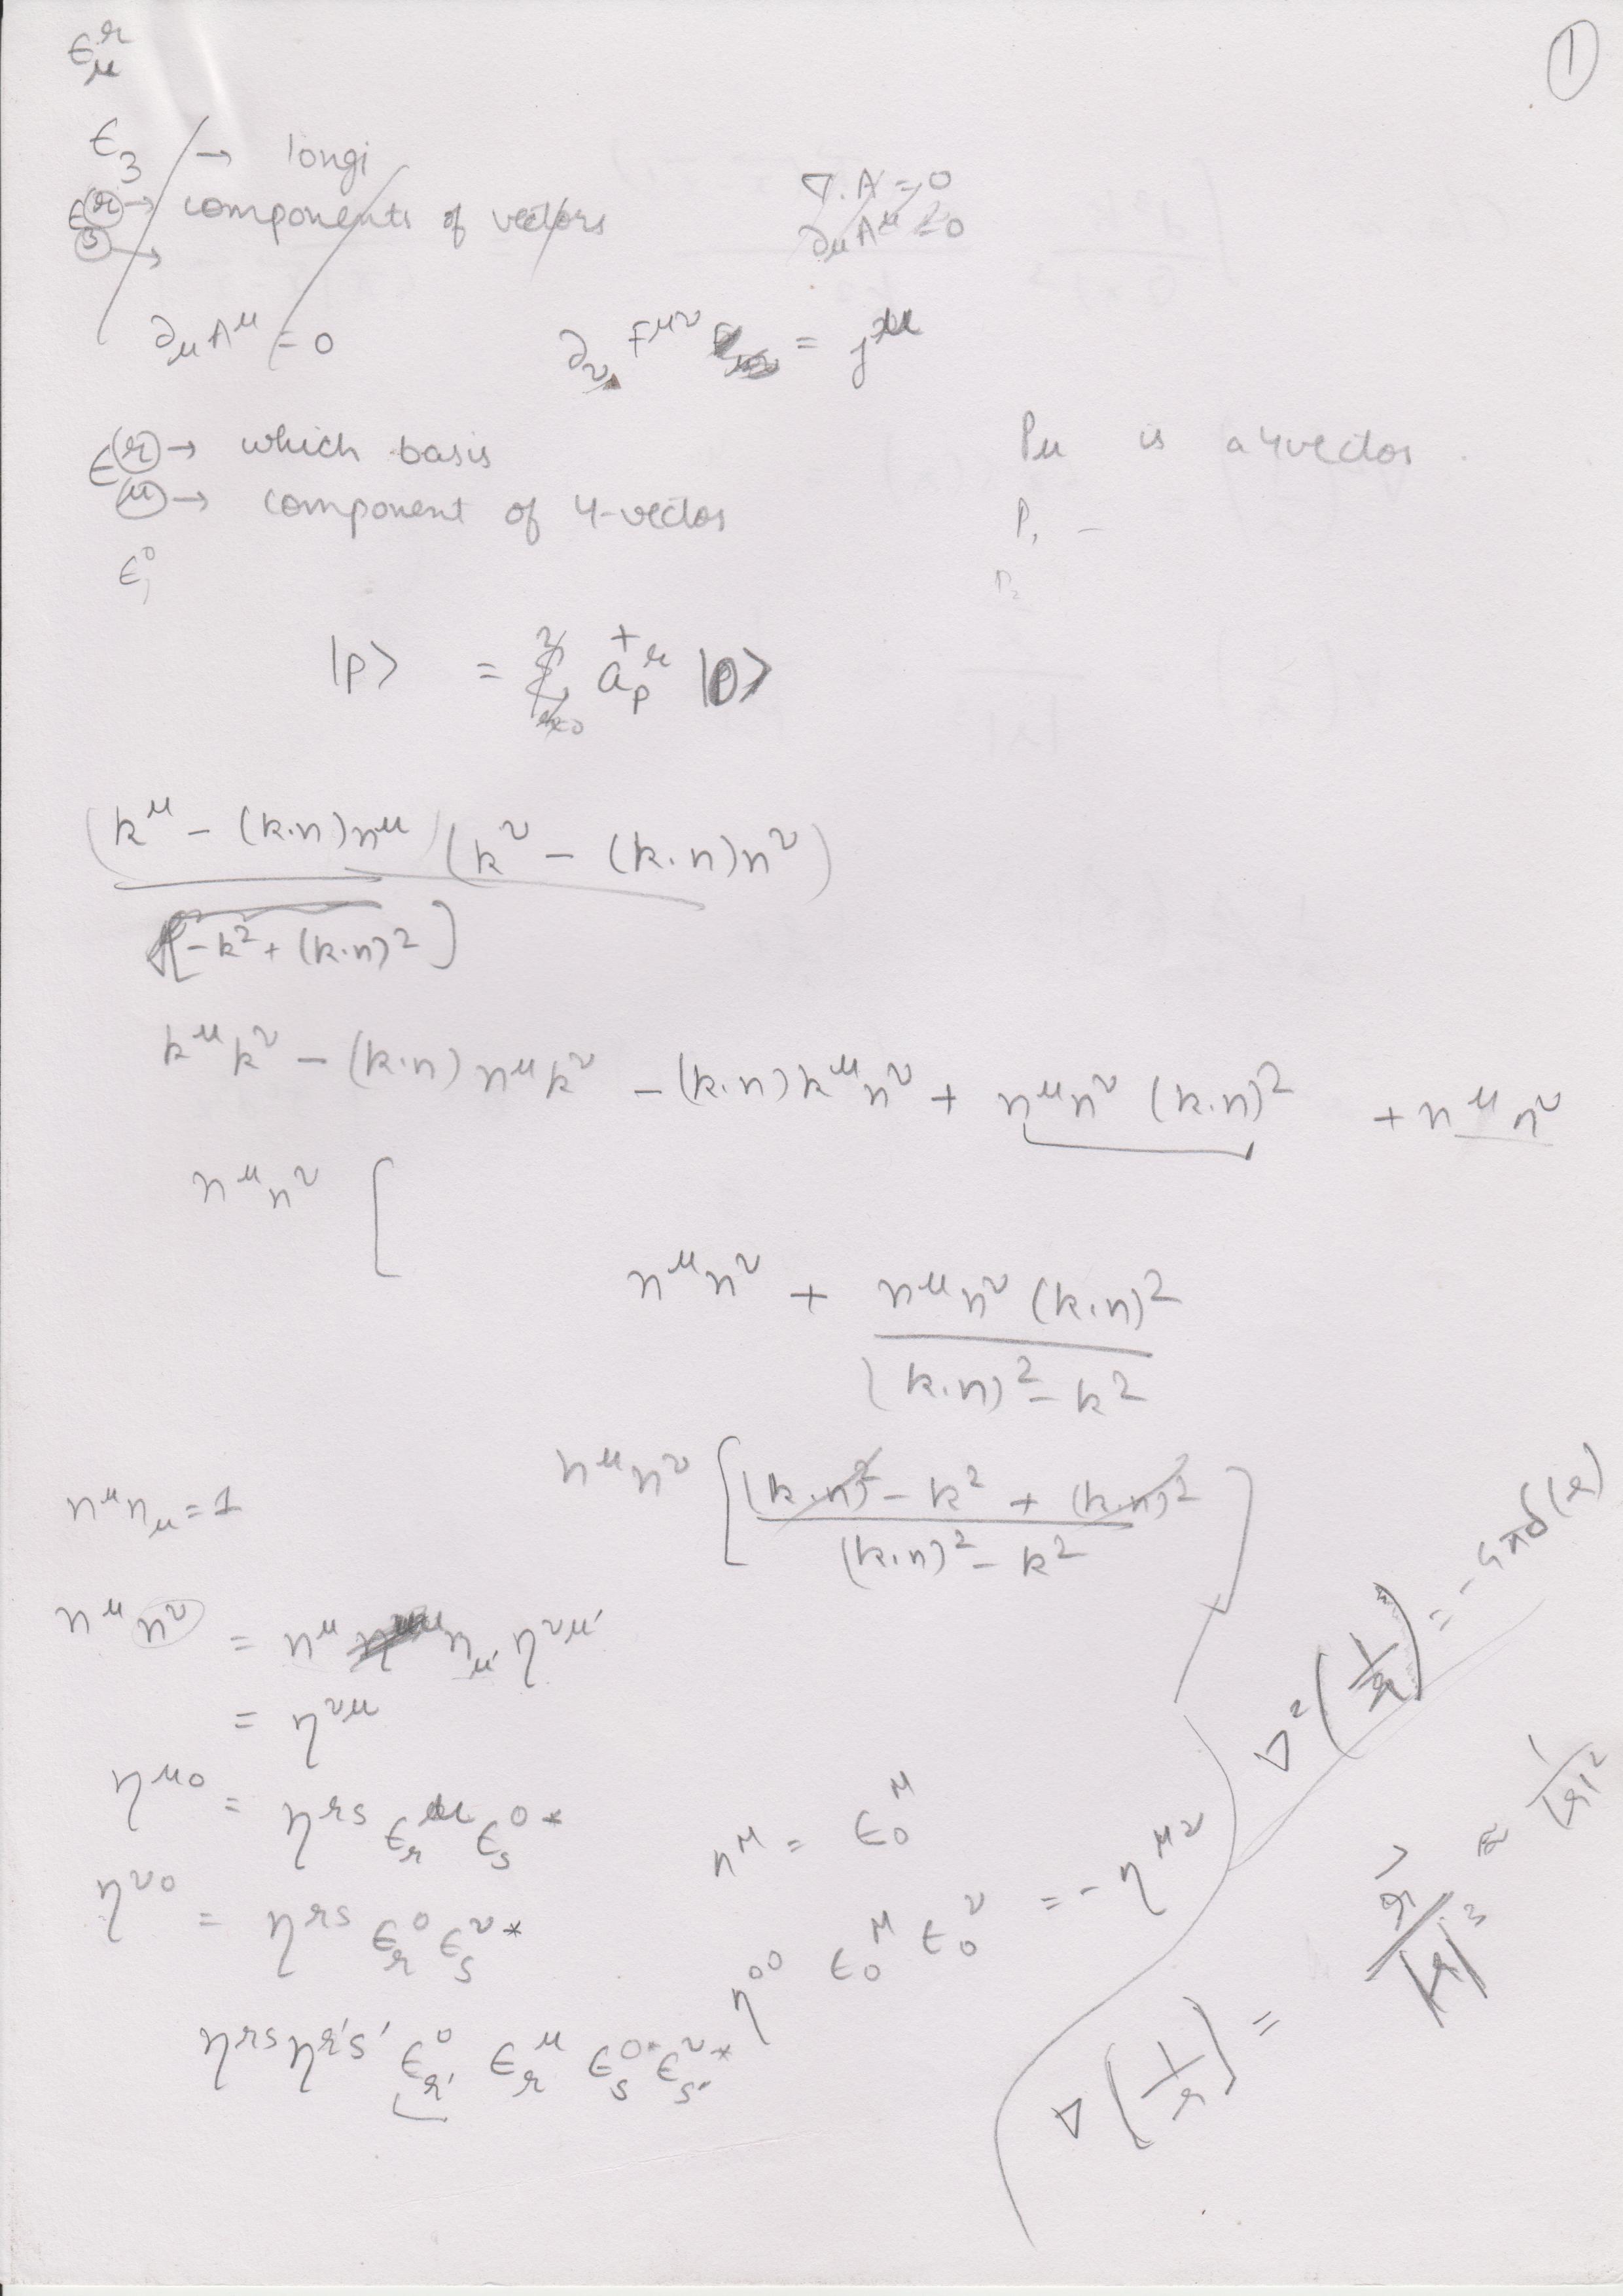 ϵ_μ^r
①
ϵ_3 → longi
ϵ^r → components of vectors
s →
∇.A = 0
∂_μ A^μ = 0
∂_μ A^μ = 0
∂_ν F^{μν} = j^μ
ϵ^r → which basis
μ → component of 4-vector
ϵ_1^0
P_μ is a 4vector.
P_1 –
P_2
|p> = a_p^{+μ} |0>
(k^μ - (k.n)n^μ)(k^ν - (k.n)n^ν)
[-k^2 + (k.n)^2]
k^μ k^ν - (k.n) n^μ k^ν - (k.n) k^μ n^ν + n^μ n^ν (k.n)^2 + n^μ n^ν
n^μ n^ν [
n^μ n^ν + n^μ n^ν (k.n)^2
(k.n)^2 - k^2
n^μ n^ν [ (k.n)^2 - k^2 + (k.n)^2 ]
(k.n)^2 - k^2
n^μ n_μ = 1
n^μ n^ν = n^μ n_{μ'} η^{νμ'}
= η^{νμ}
η^{μ0} = η^{rs} ϵ_r^μ ϵ_s^{0*}
η^{ν0} = η^{rs} ϵ_r^0 ϵ_s^{ν*}
η^{rs} η^{r's'} ϵ_{r'}^0 ϵ_r^μ ϵ_s^{0*} ϵ_{s'}^{ν*}
n^μ = ϵ_0^μ
η^{00} ϵ_0^μ ϵ_0^ν = -η^{μν}
∇^2 (1/r) = -4πδ(r)
∇ (1/r) = r/|r|^3 ≈ 1/|r|^2